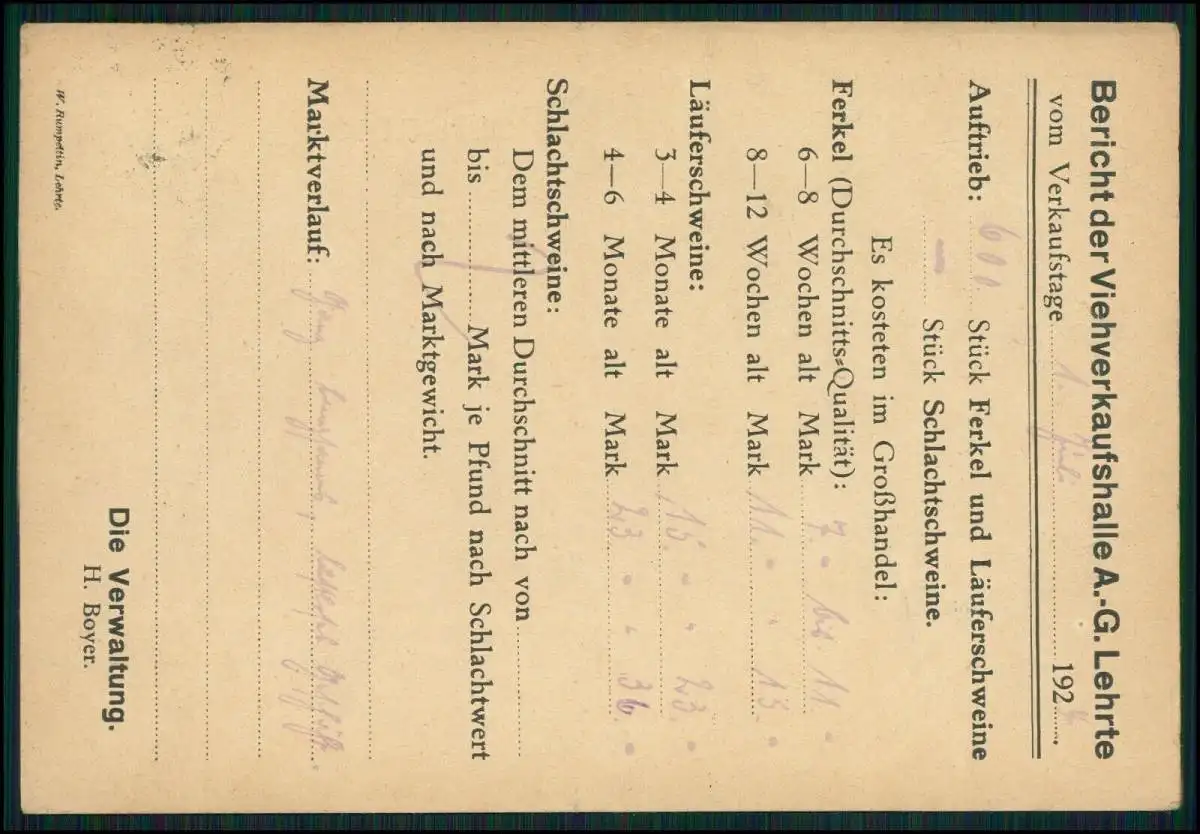 Bericht der Viehverkaufshalle A.-G. Lehrte
vom Verkaufstage 1. Juli 192
Auftrieb: 600 Stück Ferkel und Läuferschweine
— Stück Schlachtschweine.
Es kosteten im Großhandel:
Ferkel (Durchschnitts=Qualität):
6—8 Wochen alt Mark 7.- bis 11 -
8—12 Wochen alt Mark 11.- - 15.-
Läuferschweine:
3—4 Monate alt Mark 15.- - 23.-
4—6 Monate alt Mark 23 - - 36.-
Schlachtschweine:
Dem mittleren Durchschnitt nach von
bis Mark je Pfund nach Schlachtwert
und nach Marktgewicht.
Marktverlauf: Ganz
Die Verwaltung.
H. Boyer.
W. Rumpeltin, Lehrte.